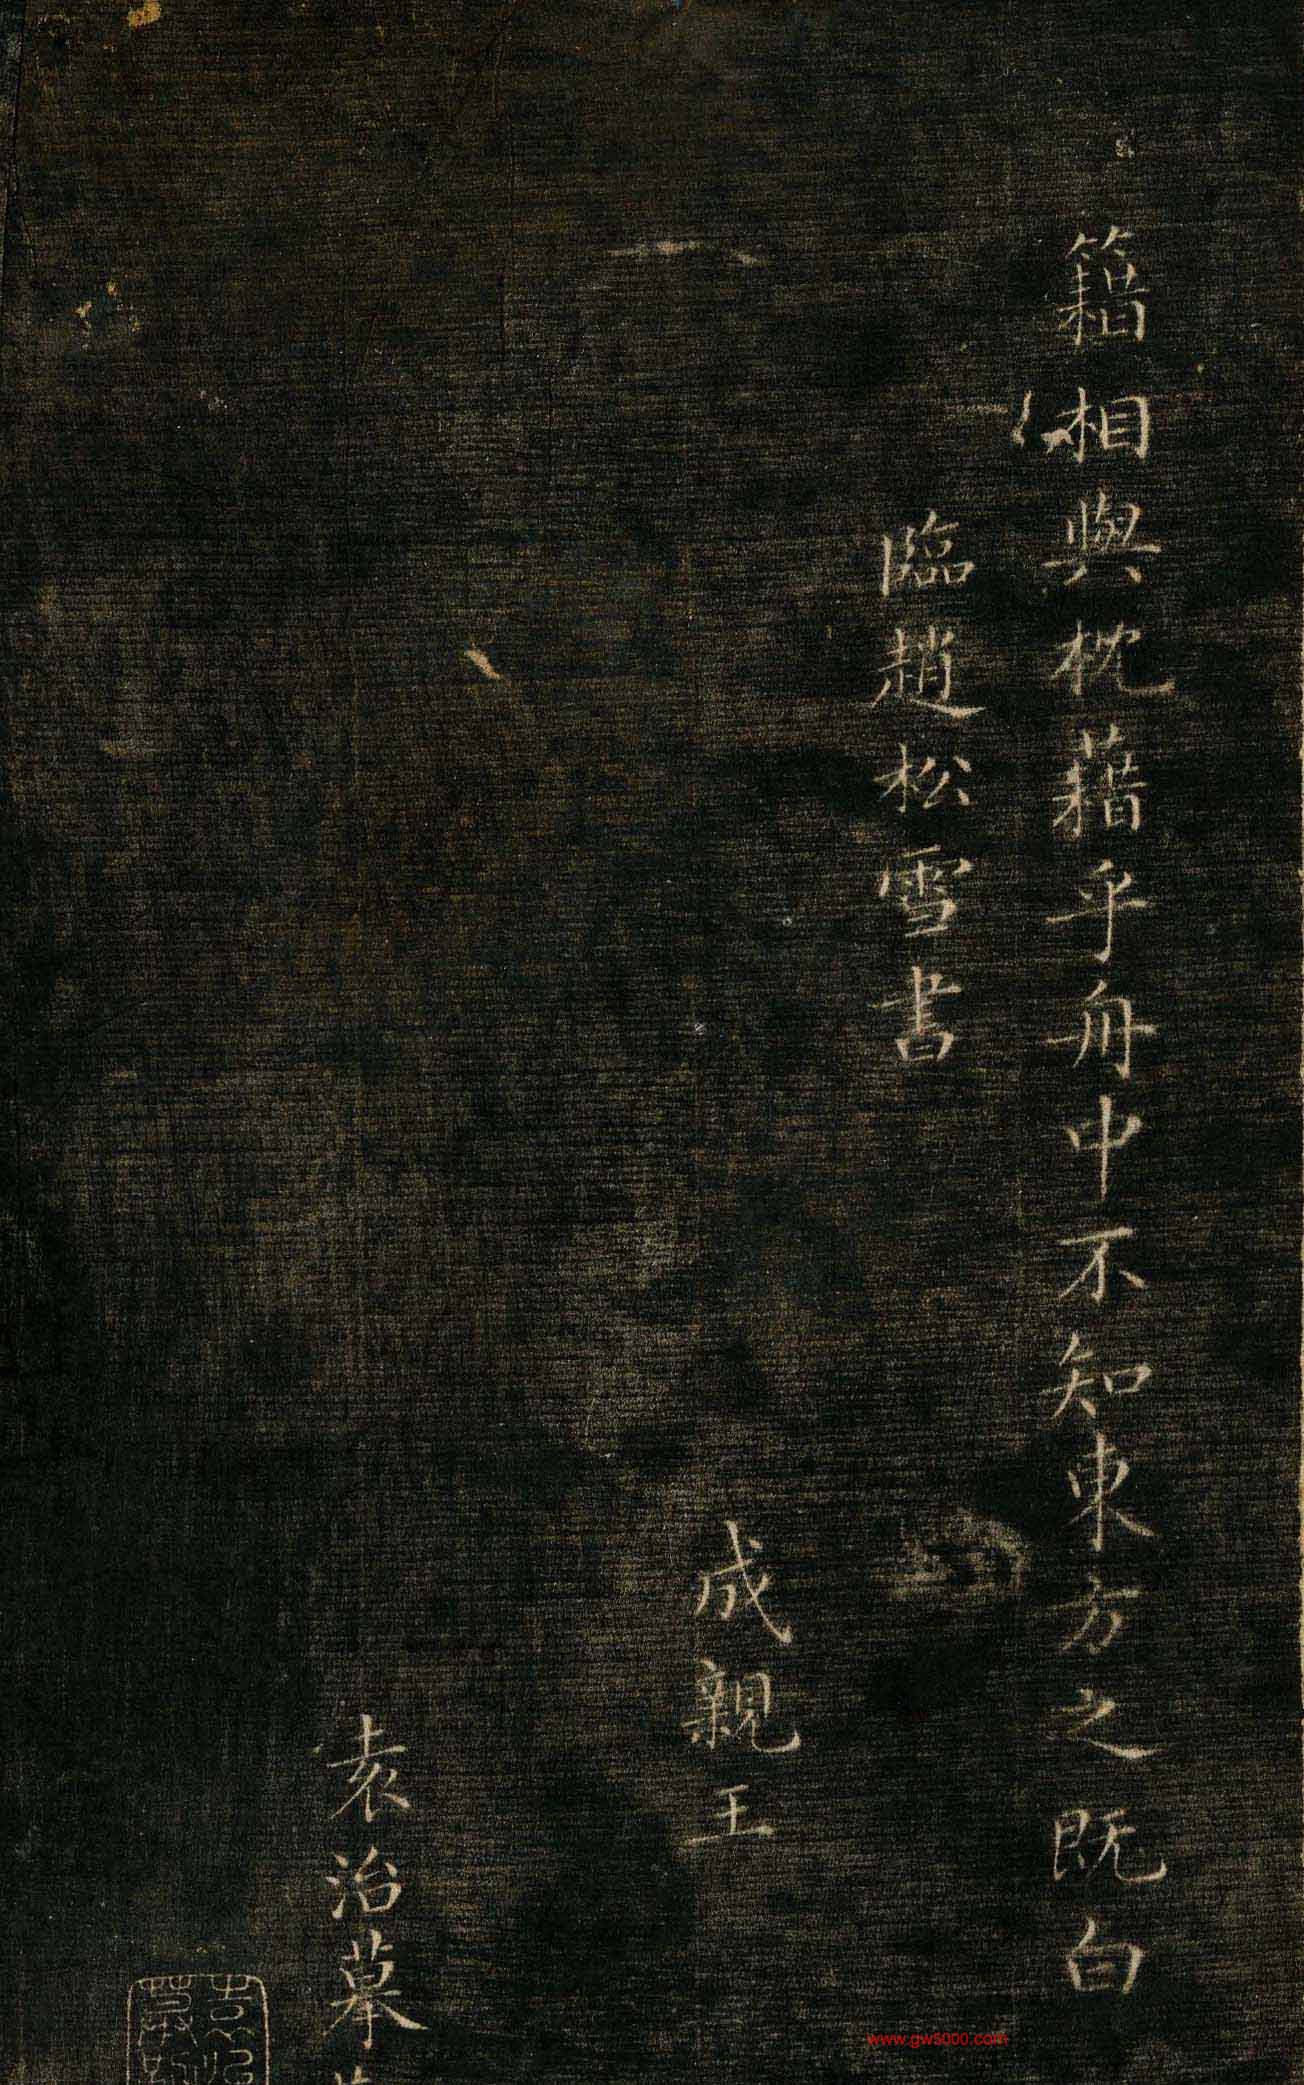 籍相與枕藉乎舟中不知東方之既白
臨趙松雪書
成親王
袁治摹
www.gw5000.com